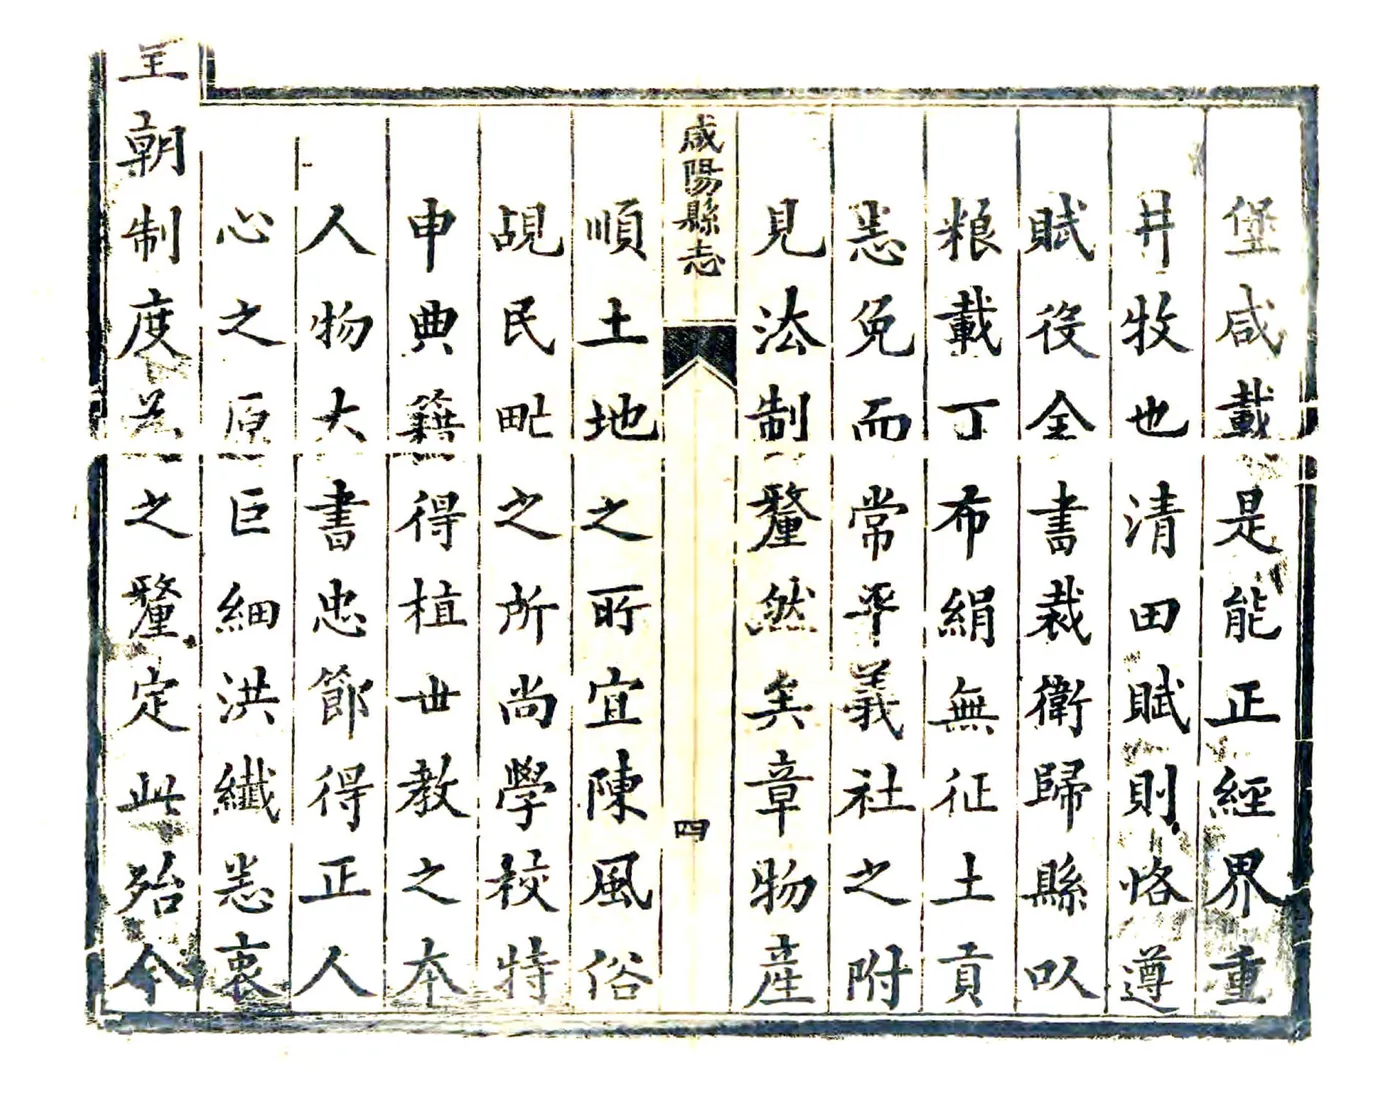 堡咸載是能正經界重
井牧也清田賦則恪遵
賦役全書裁衛歸縣以
粮載丁布絹無征土貢
悉免而常平義社之附
見法制釐然矣章物產
咸陽縣志
四
順土地之所宜陳風俗
覘民甿之所尚學校特
申典籍得植世教之本
人物大書忠節得正人
心之原巨細洪纖悉衷
朝制度之釐定此殆今